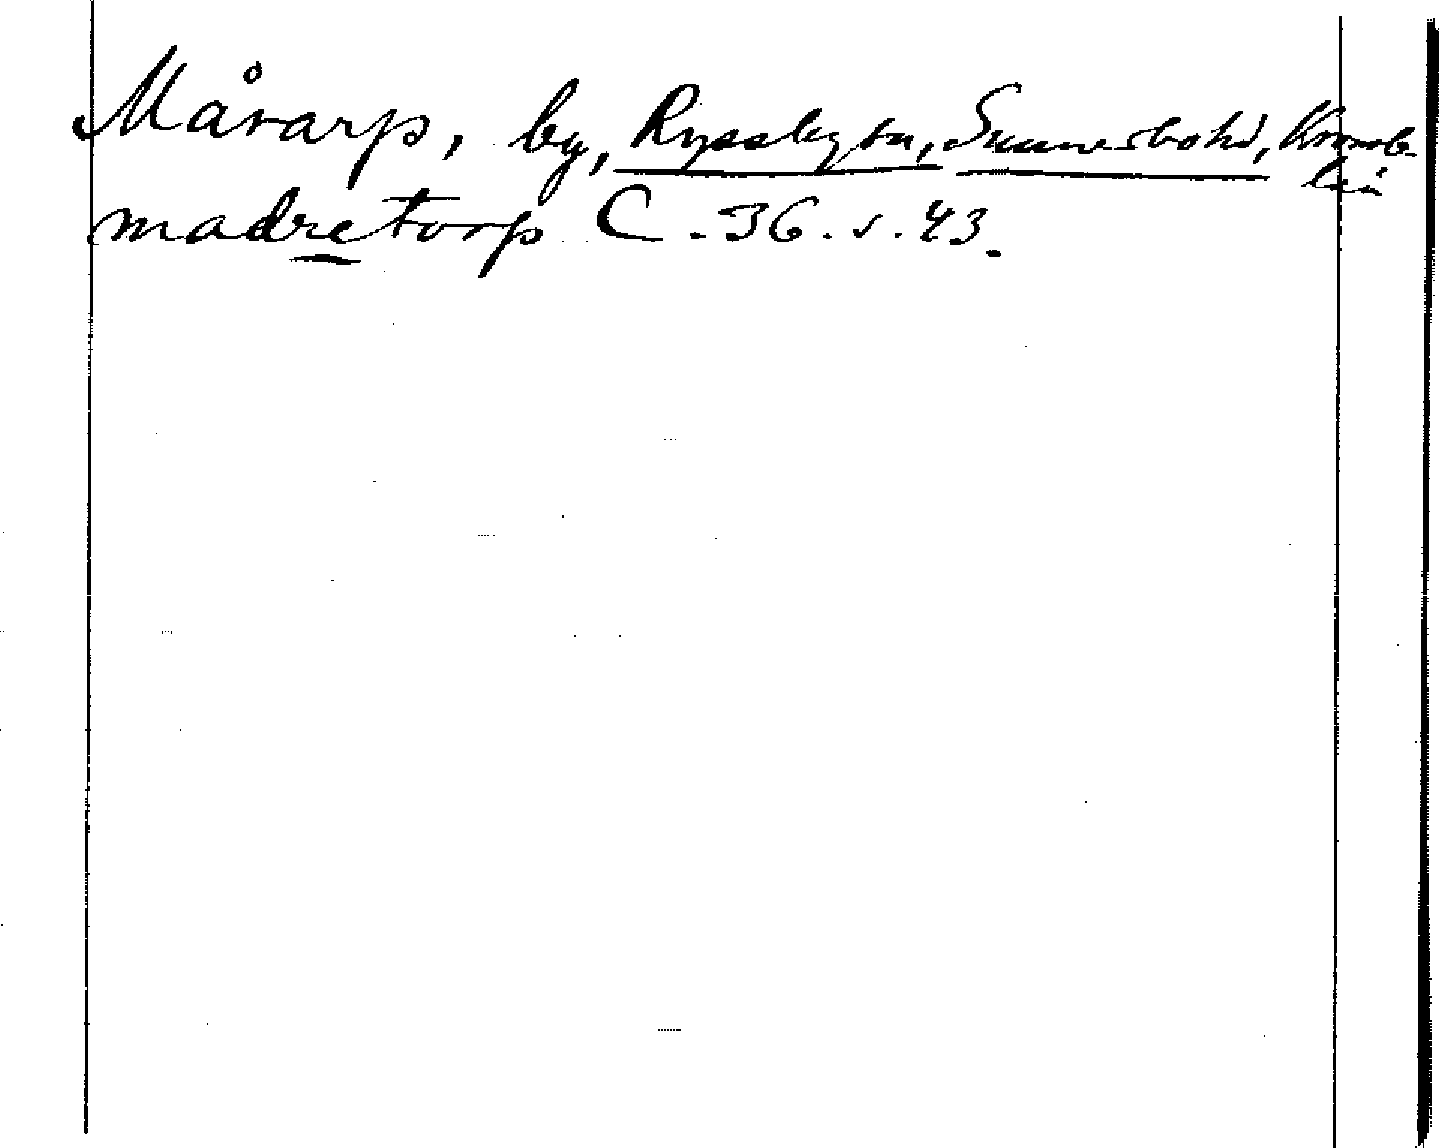 Målarp, by, Ryssby sn, Sunnerbo hd, Kronob.
län
madretorp C. 36. s. 43.